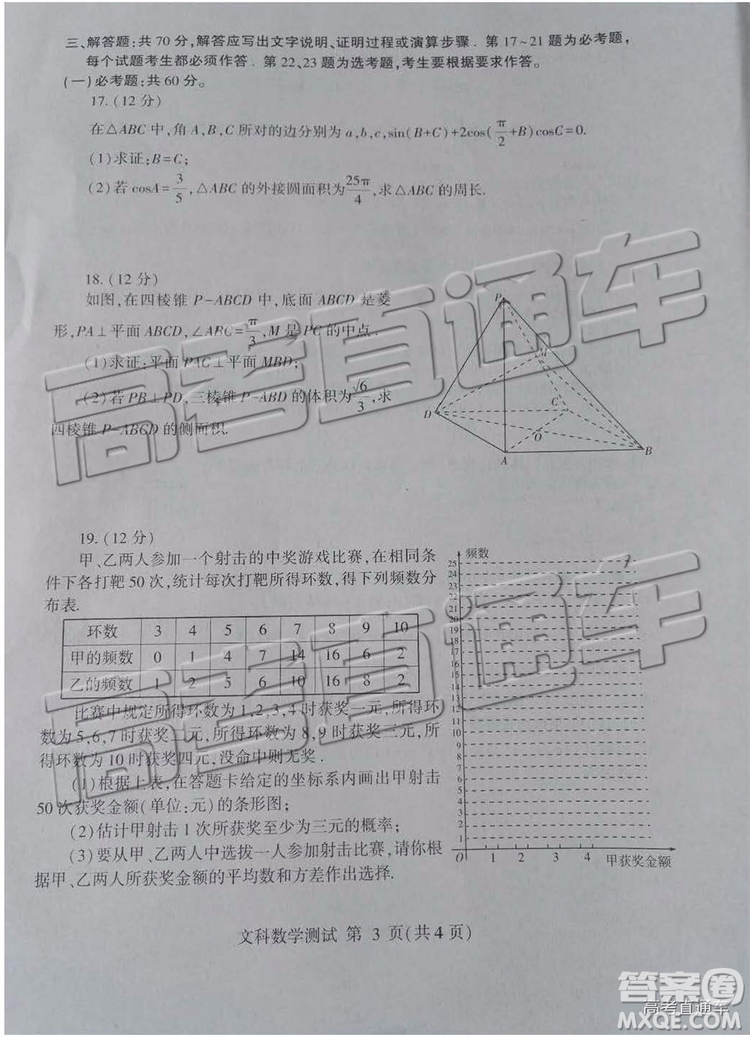 三、解答题:共70分,解答应写出文字说明、证明过程或演算步骤.第17~21题为必考题,
每个试题考生都必须作答.第22、23题为选考题,考生要根据要求作答。
(一)必考题:共60分。
17.(12分)
在△ABC中,角A,B,C所对的边分别为a,b,c,sin(B+C)+2cos(π/2+B)cosC=0.
(1)求证:B=C;
(2)若cosA=3/5,△ABC的外接圆面积为25π/4,求△ABC的周长.
18.(12分)
如图,在四棱锥P-ABCD中,底面ABCD是菱
形,PA⊥平面ABCD,∠ABC=π/3,M是PC的中点.
(1)求证:平面PAC⊥平面MBD;
(2)若PB⊥PD,三棱锥P-ABD的体积为√6/3,求
四棱锥P-ABCD的侧面积.
P
M
D
C
O
A
B
19.(12分)
甲、乙两人参加一个射击的中奖游戏比赛,在相同条
件下各打靶50次,统计每次打靶所得环数,得下列频数分
布表.
环数 3 4 5 6 7 8 9 10
甲的频数 0 1 4 7 14 16 6 2
乙的频数 1 2 5 6 10 16 8 2
比赛中规定所得环数为1,2,3,4时获奖一元,所得环
数为5,6,7时获奖二元,所得环数为8,9时获奖三元,所
得环数为10时获奖四元,没命中则无奖.
(1)根据上表,在答题卡给定的坐标系内画出甲射击
50次获奖金额(单位:元)的条形图;
(2)估计甲射击1次所获奖至少为三元的概率;
(3)要从甲、乙两人中选拔一人参加射击比赛,请你根
据甲、乙两人所获奖金额的平均数和方差作出选择.
频数
25
24
23
22
21
20
19
18
17
16
15
14
13
12
11
10
9
8
7
6
5
4
3
2
1
O 1 2 3 4 甲获奖金额
文科数学测试 第 3 页(共4页)
高考直通车
高考直通车
答案圈
高考直通车
MXQE.COM